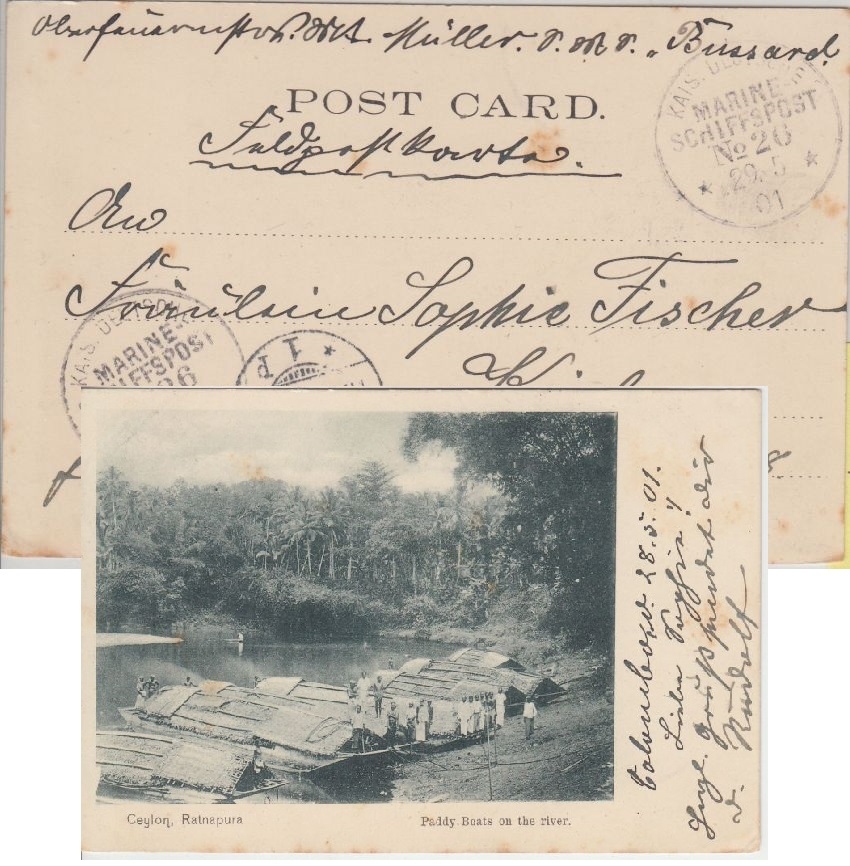 Oberfeuermstrs. Mt. Müller. S.M.S. „Bussard.
POST CARD.
KAIS. DEUTSCHE
MARINE-
SCHIFFSPOST
No 26
★ 29. 5 ★
01
Feldpostkarte.
An
Fräulein Sophie Fischer
KAIS. DEUTSCHE
MARINE-
SCHIFFSPOST
26
★ 1 P
Colombo 28.5.01.
Liebe Sophie!
Herzl. Gruß sendet dir
d. Rudolf
Ceylon, Ratnapura
Paddy Boats on the river.